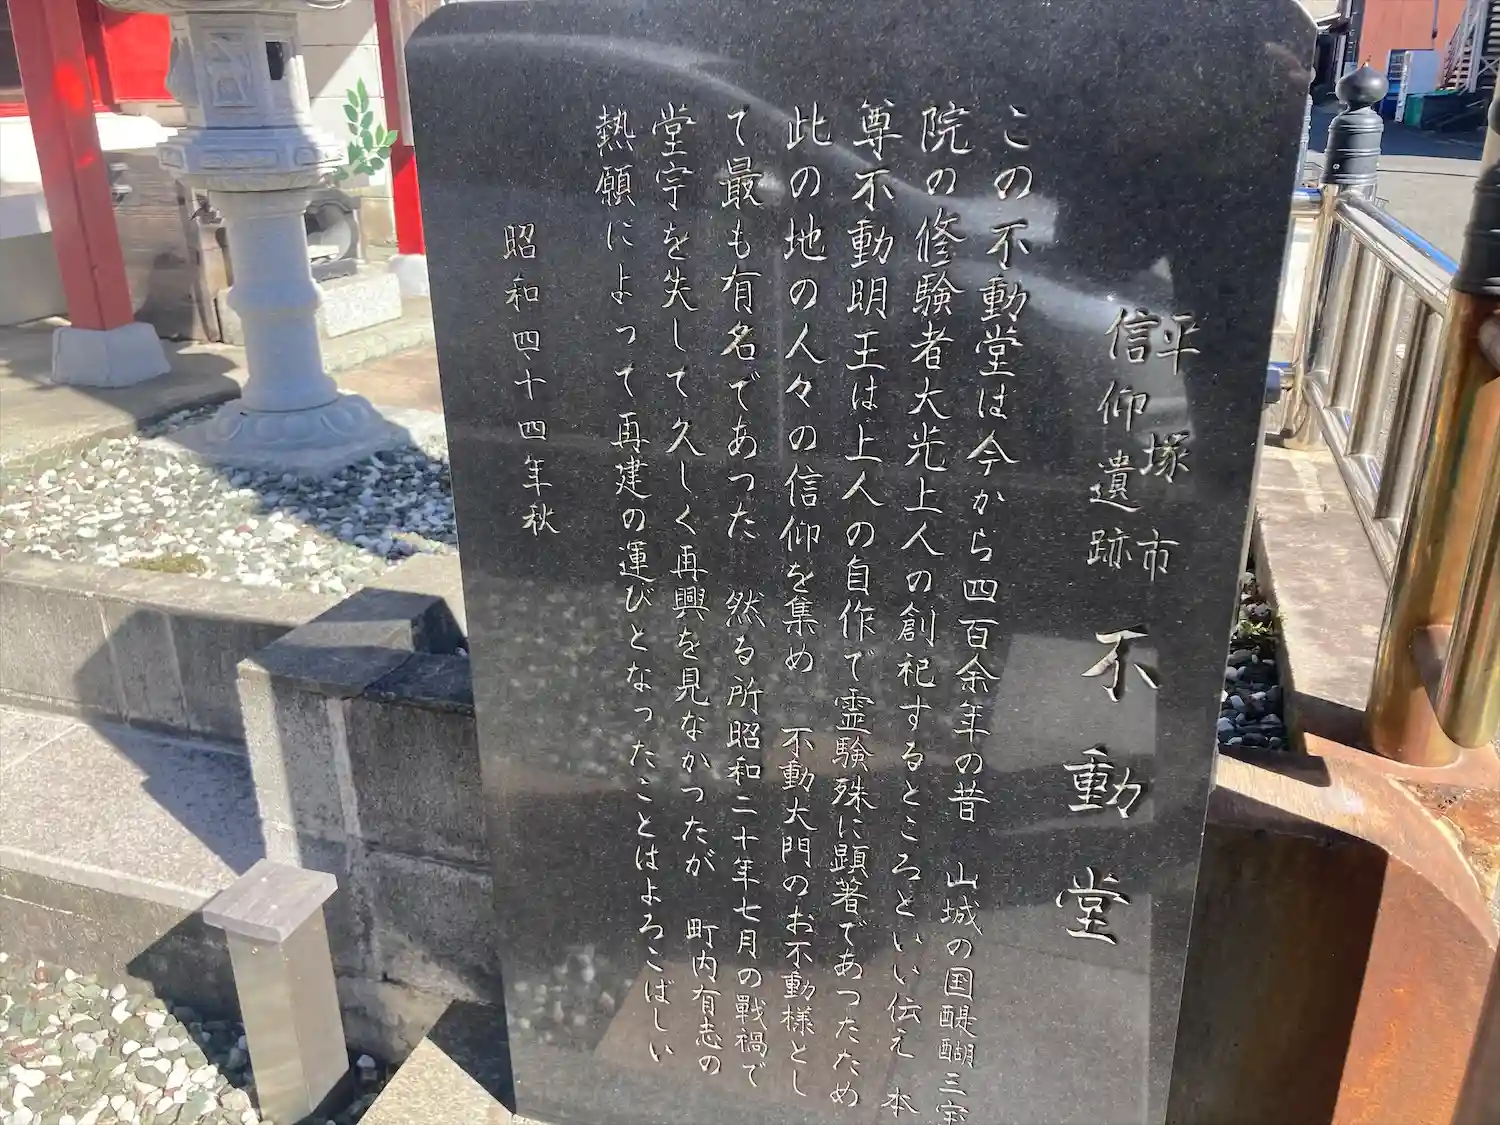 平塚市
信仰遺跡
不動堂
この不動堂は今から四百余年の昔　山城の国醍醐三宝
院の修験者大光上人の創祀するところといい伝え　本
尊不動明王は上人の自作で霊験殊に顕著であつたため
此の地の人々の信仰を集め　不動大門のお不動様とし
て最も有名であつた　然る所昭和二十年七月の戰禍で
堂宇を失して久しく再興を見なかつたが　町内有志の
熱願によつて再建の運びとなつたことはよろこばしい
昭和四十四年秋